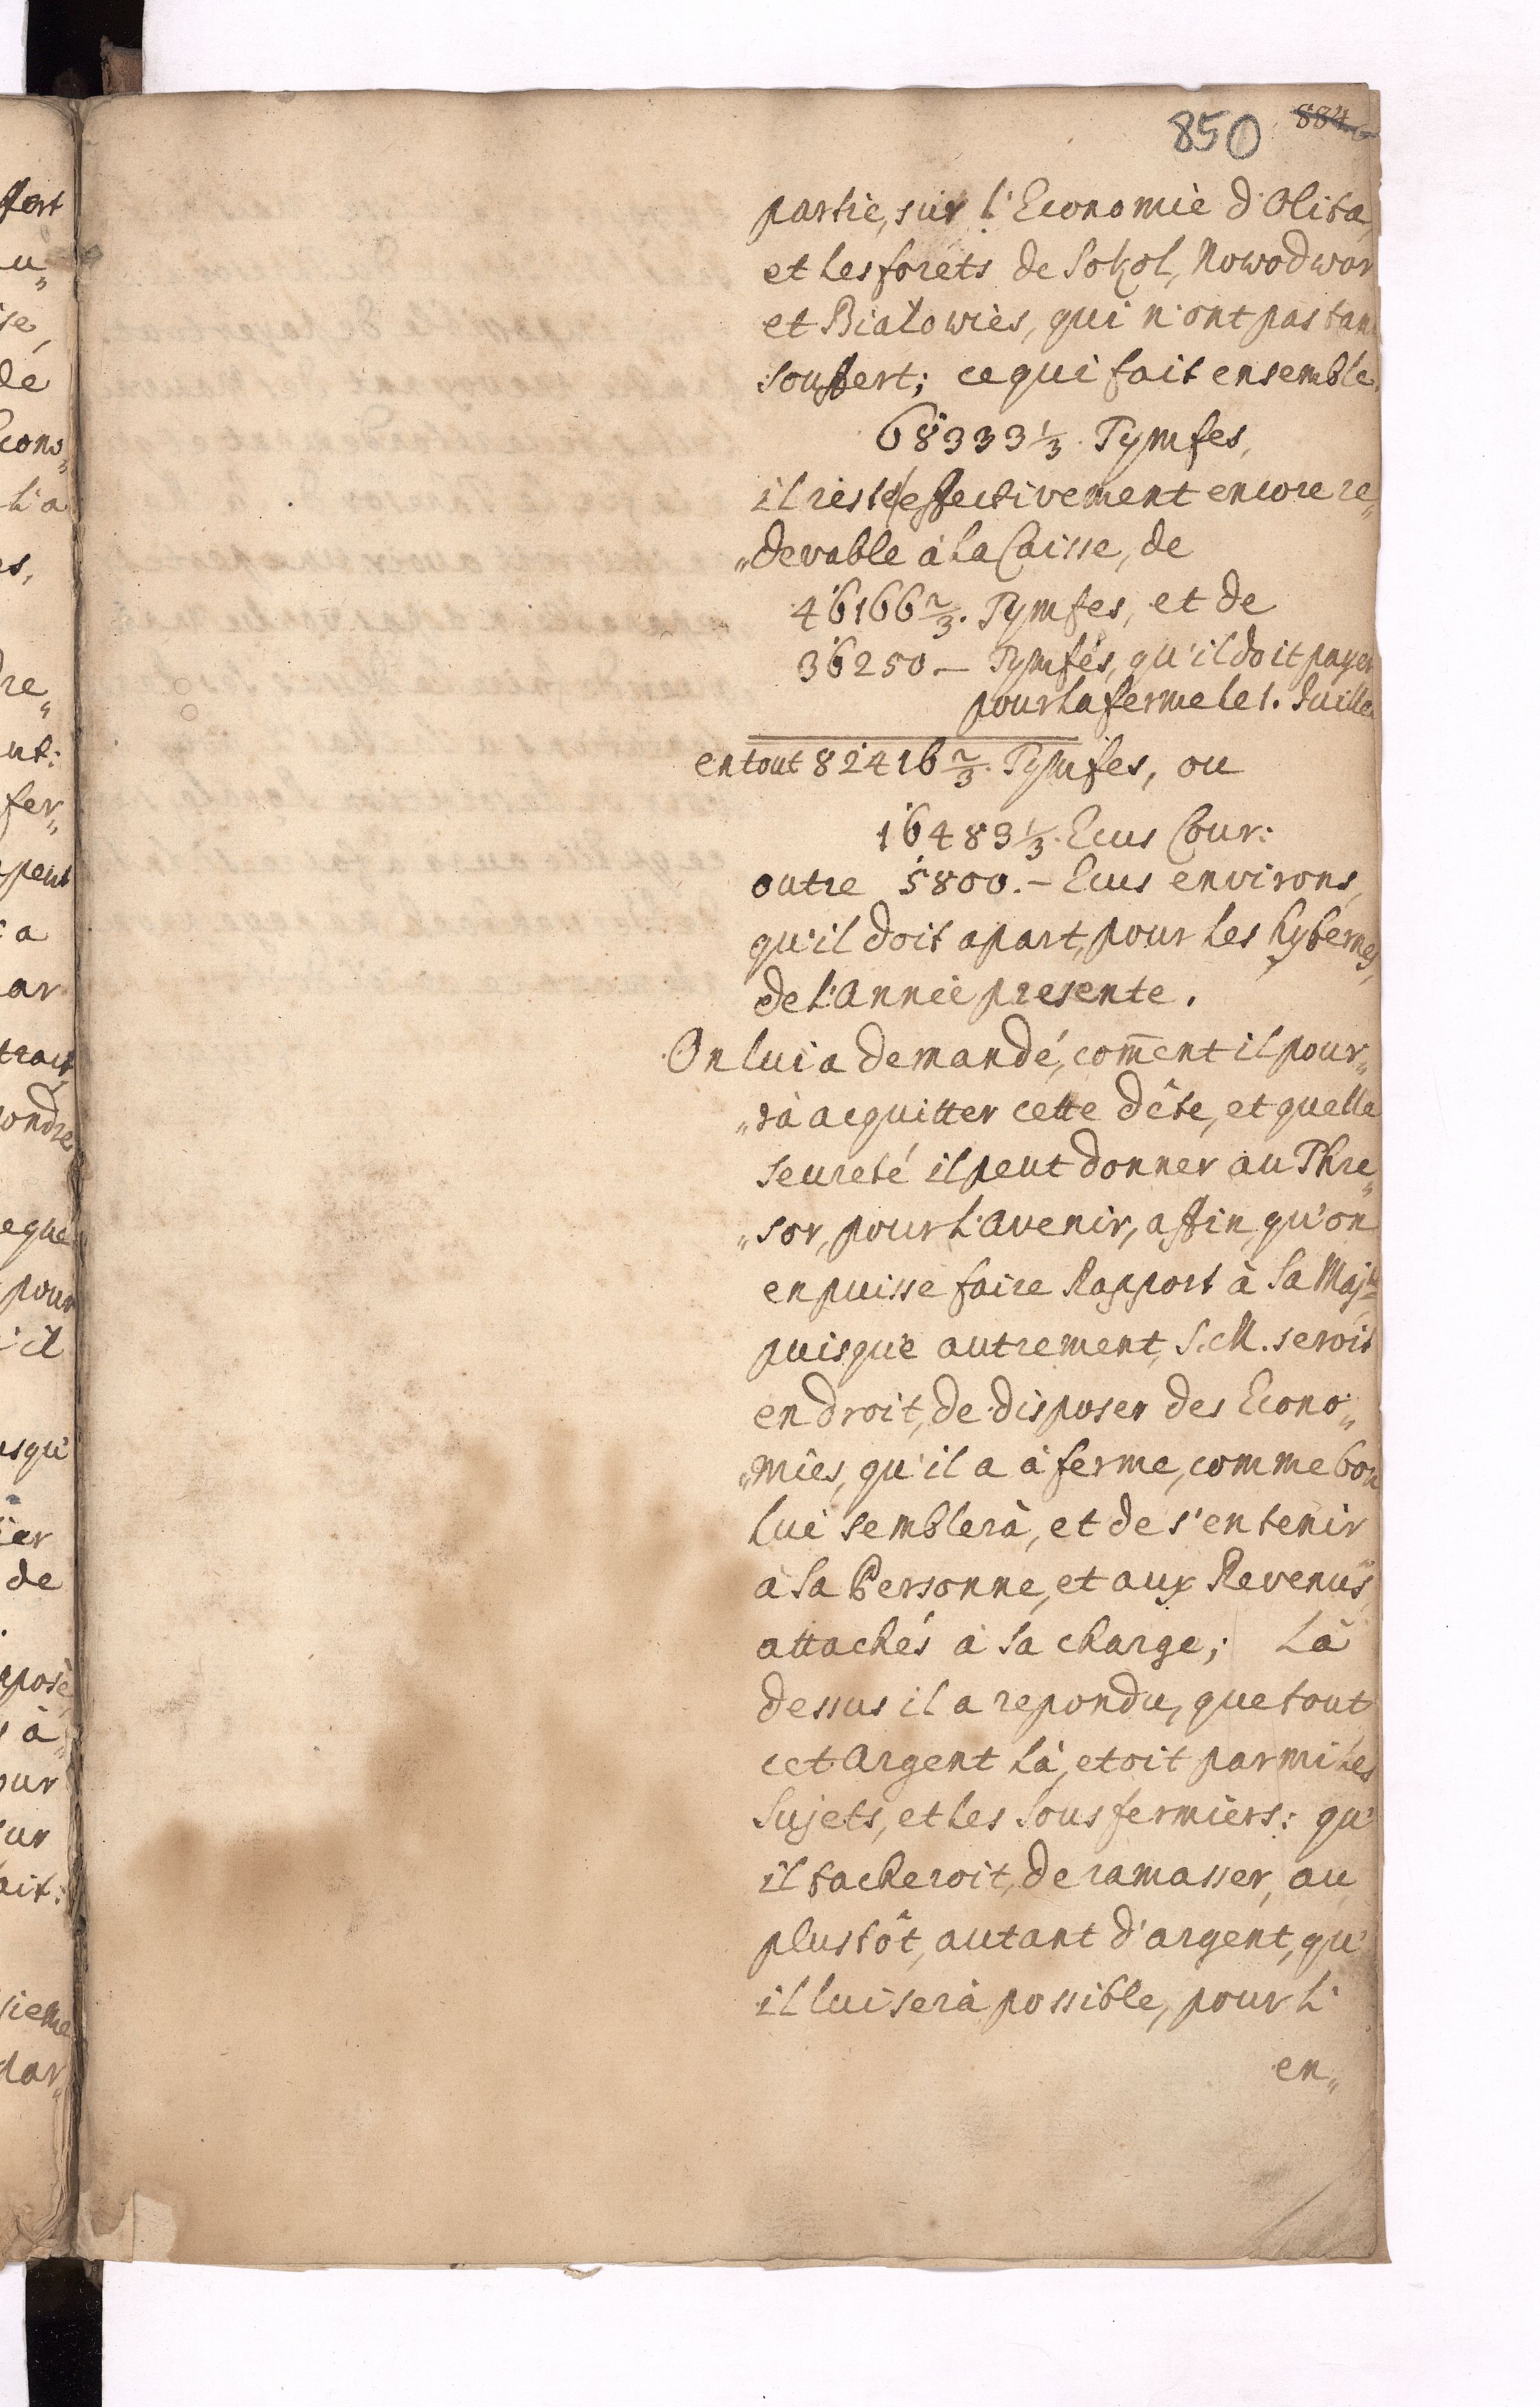 850 884
partie, sur l'Economie d'Olita,
et les forêts de Sokol, Nowodwor
et Bialowies, qui n'ont pas tant
souffert; ce qui fait ensemble.
68333 1/3. Tymfes,
il reste effectivement encore re„
„devable à la Caisse, de
46166 2/3. Tymfes, et de
36250.— Tymfes, qu'il doit payer
pour la ferme le 1. Juillet
en tout 82416 2/3. Tymfes, ou
16483 1/3. Ecus Cour:
outre 5800.— Ecus environs,
qu'il doit apart, pour les hybernes,
de l'Année presente.
On lui a demandé, com̄ent il pour„
„rà acquitter cette dête, et quelle
seureté il peut donner au Thre„
„sor, pour l'avenir, affin, qu'on
en puisse faire Rapport à Sa Majté
puisque autrement, S. M. seroit
en droit, de disposer des Econo„
„mies, qu'il a à ferme, comme bon
lui semblerà, et de s'en tenir
à sa Personne, et aux Revenus
attachés à sa charge; Là
dessus il a repondu, que tout
cet Argent là, etoit parmi les
Sujets, et les Sousfermiers: qu'
il tacheroit, de ramasser, au
plustôt, autant d'argent, qu'
il lui serà possible, pour l'
en„
fert
u„
se,
dé
Econo„
l'a
es,
dre„
ut:
fer„
peut
a
ar
tract
ondre
eque
pour
'il
usqu'
ier
de
posé
à„
our
ur
ait:
sieme